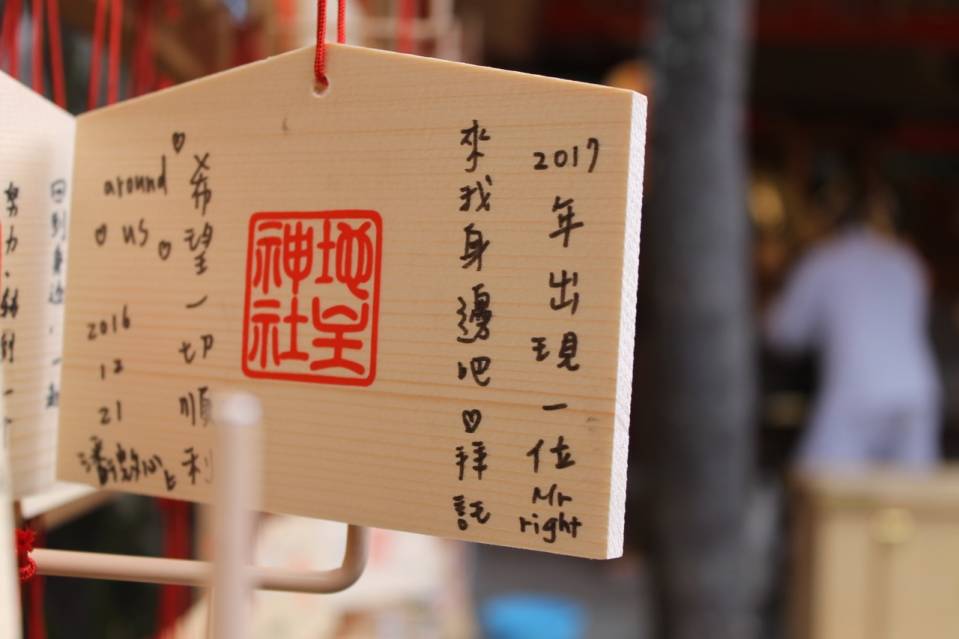 2017年出現一位Mr right
來我身邊吧♡拜託
地主
神社
希望一切順利
♡
around
♡ us ♡
2016
12
21
回到身邊
努力